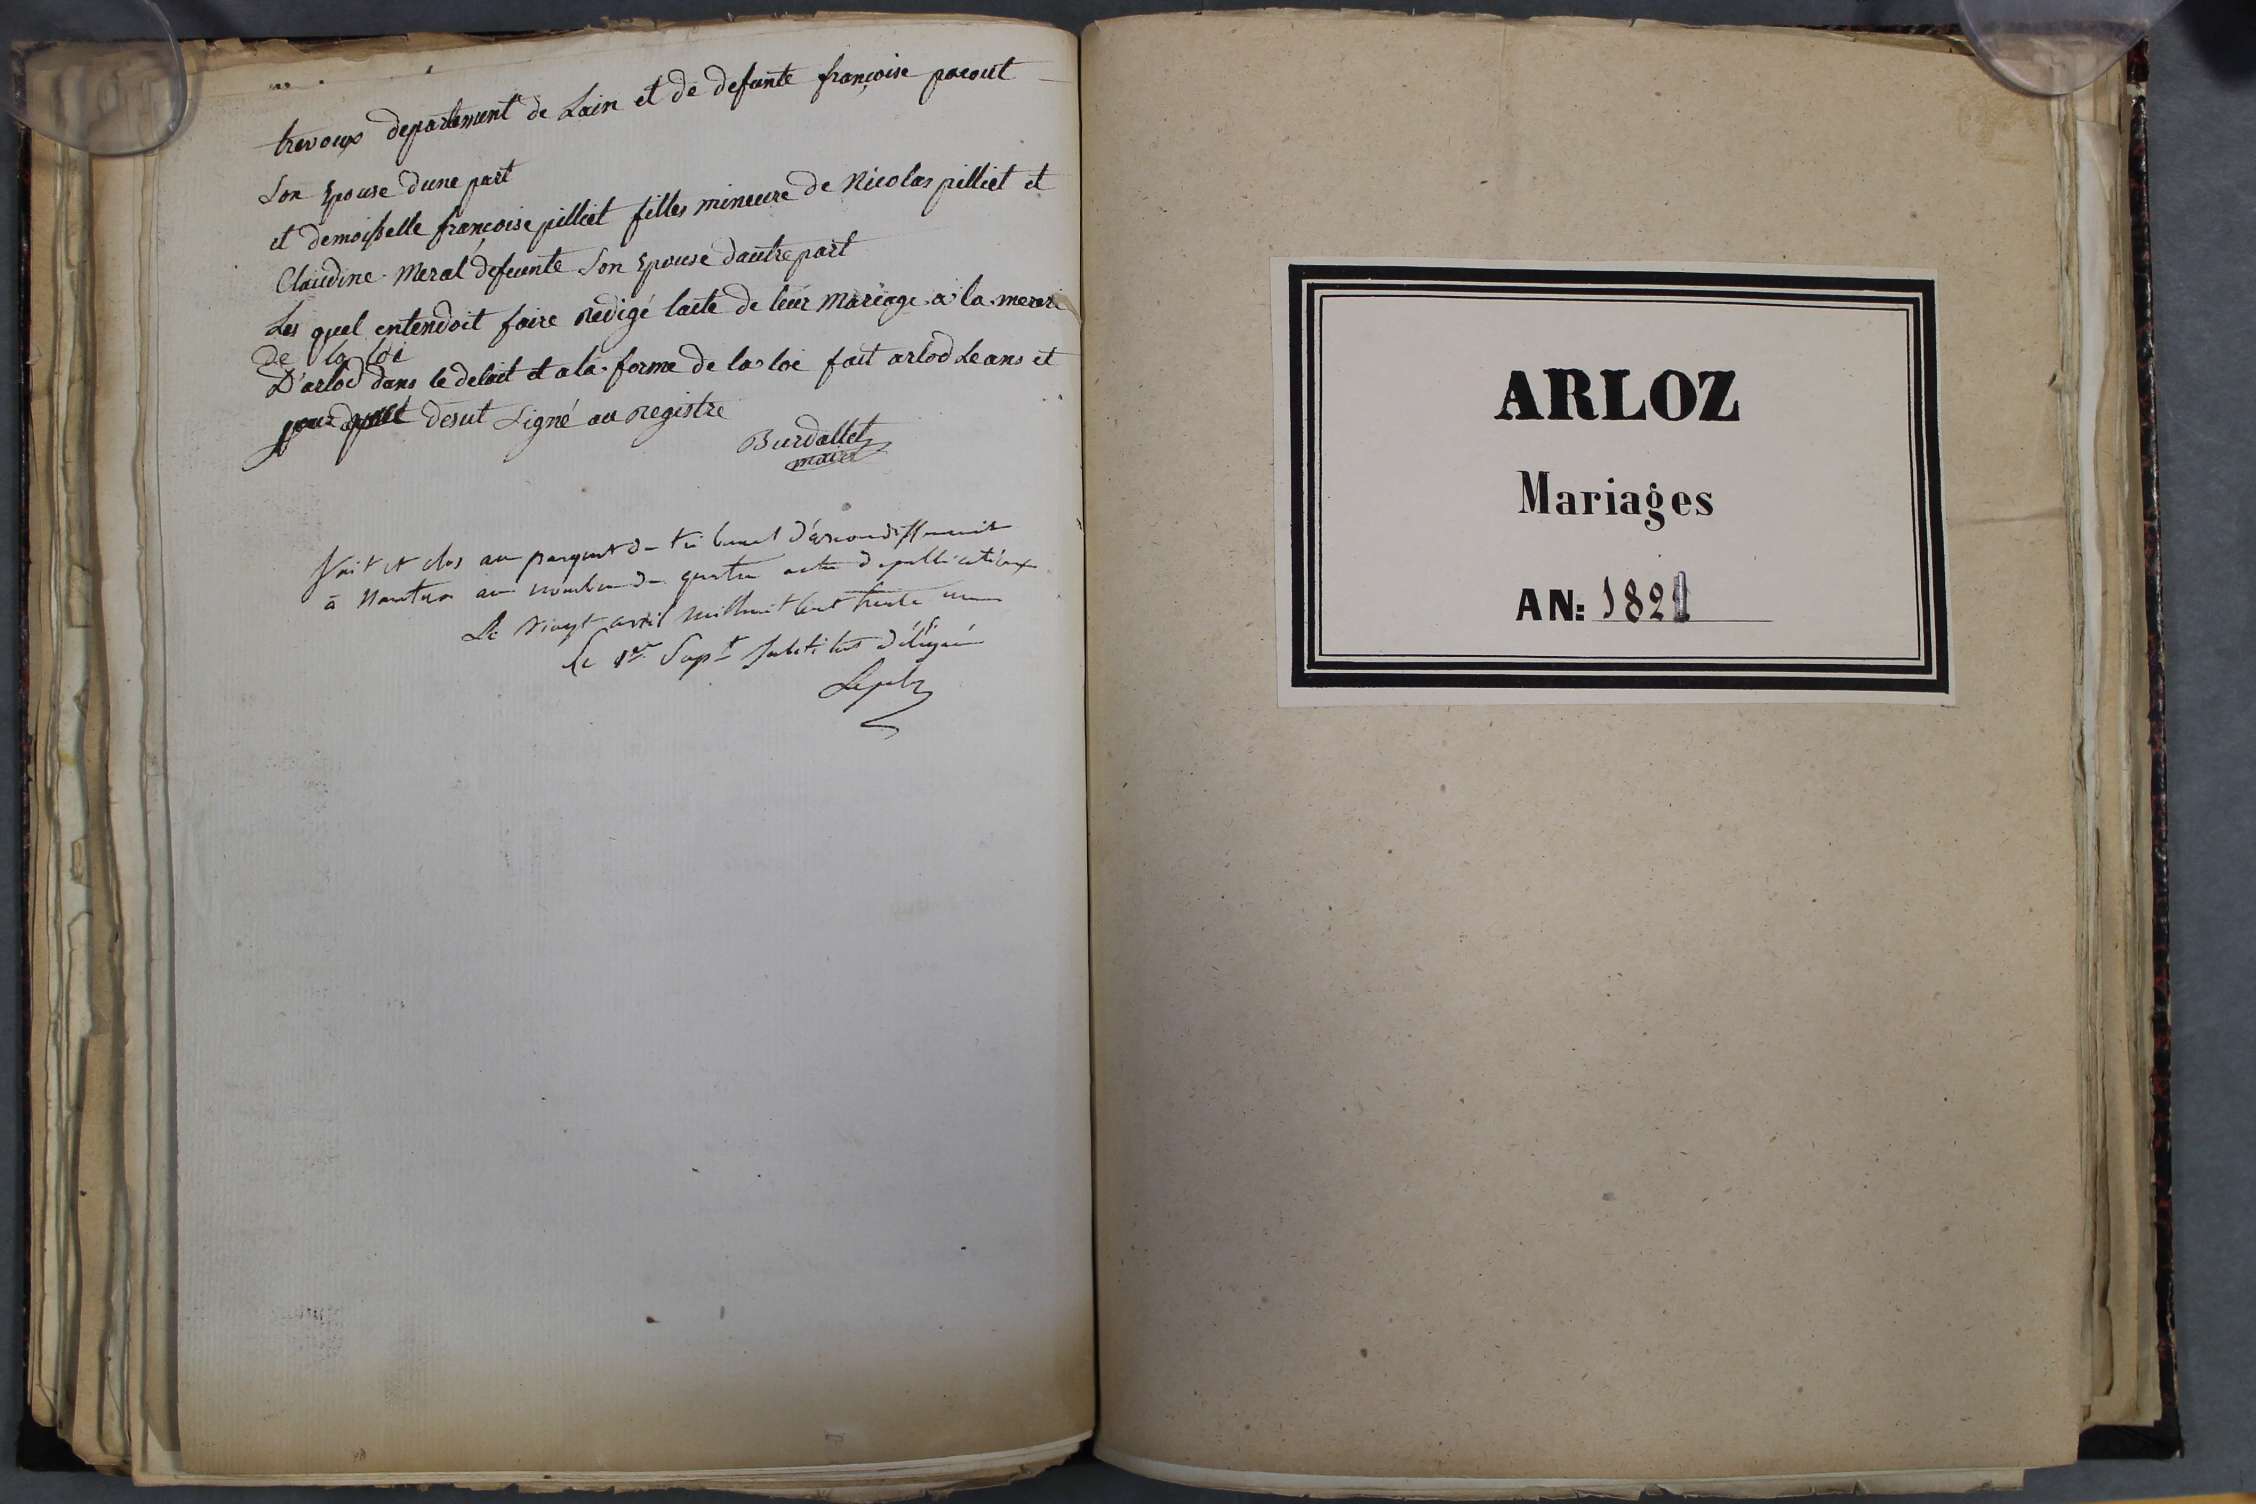 trevoux departement de Lain et de defunte françoise pacout
Son Epouse dune part
et demoisselle françoise pilliet filles mineure de Nicolas pilliet et
Claudine Meral defeunte Son Epouse dautre part
Les quel entendoit faire redigé lacte de leur mariage a la merer
de la loi
D'arlod dans le delait et a la forme de la loi fait arlod Le ans et
jour desut Signé au registre
Burdallet
maire
Vait et clos au parquet du tribunal d'arrondissement
à Nantua au nombre de quatre acte de publications
Le vingt avril mil huit cent trente un
Le 1er Supt Substitut délégué
ARLOZ
Mariages
AN: 1821